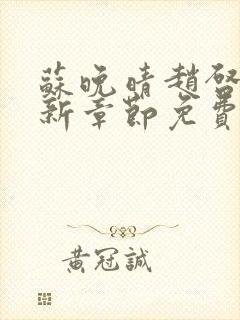 蘇晚晴趙啓
新章節免費
黃冠誠